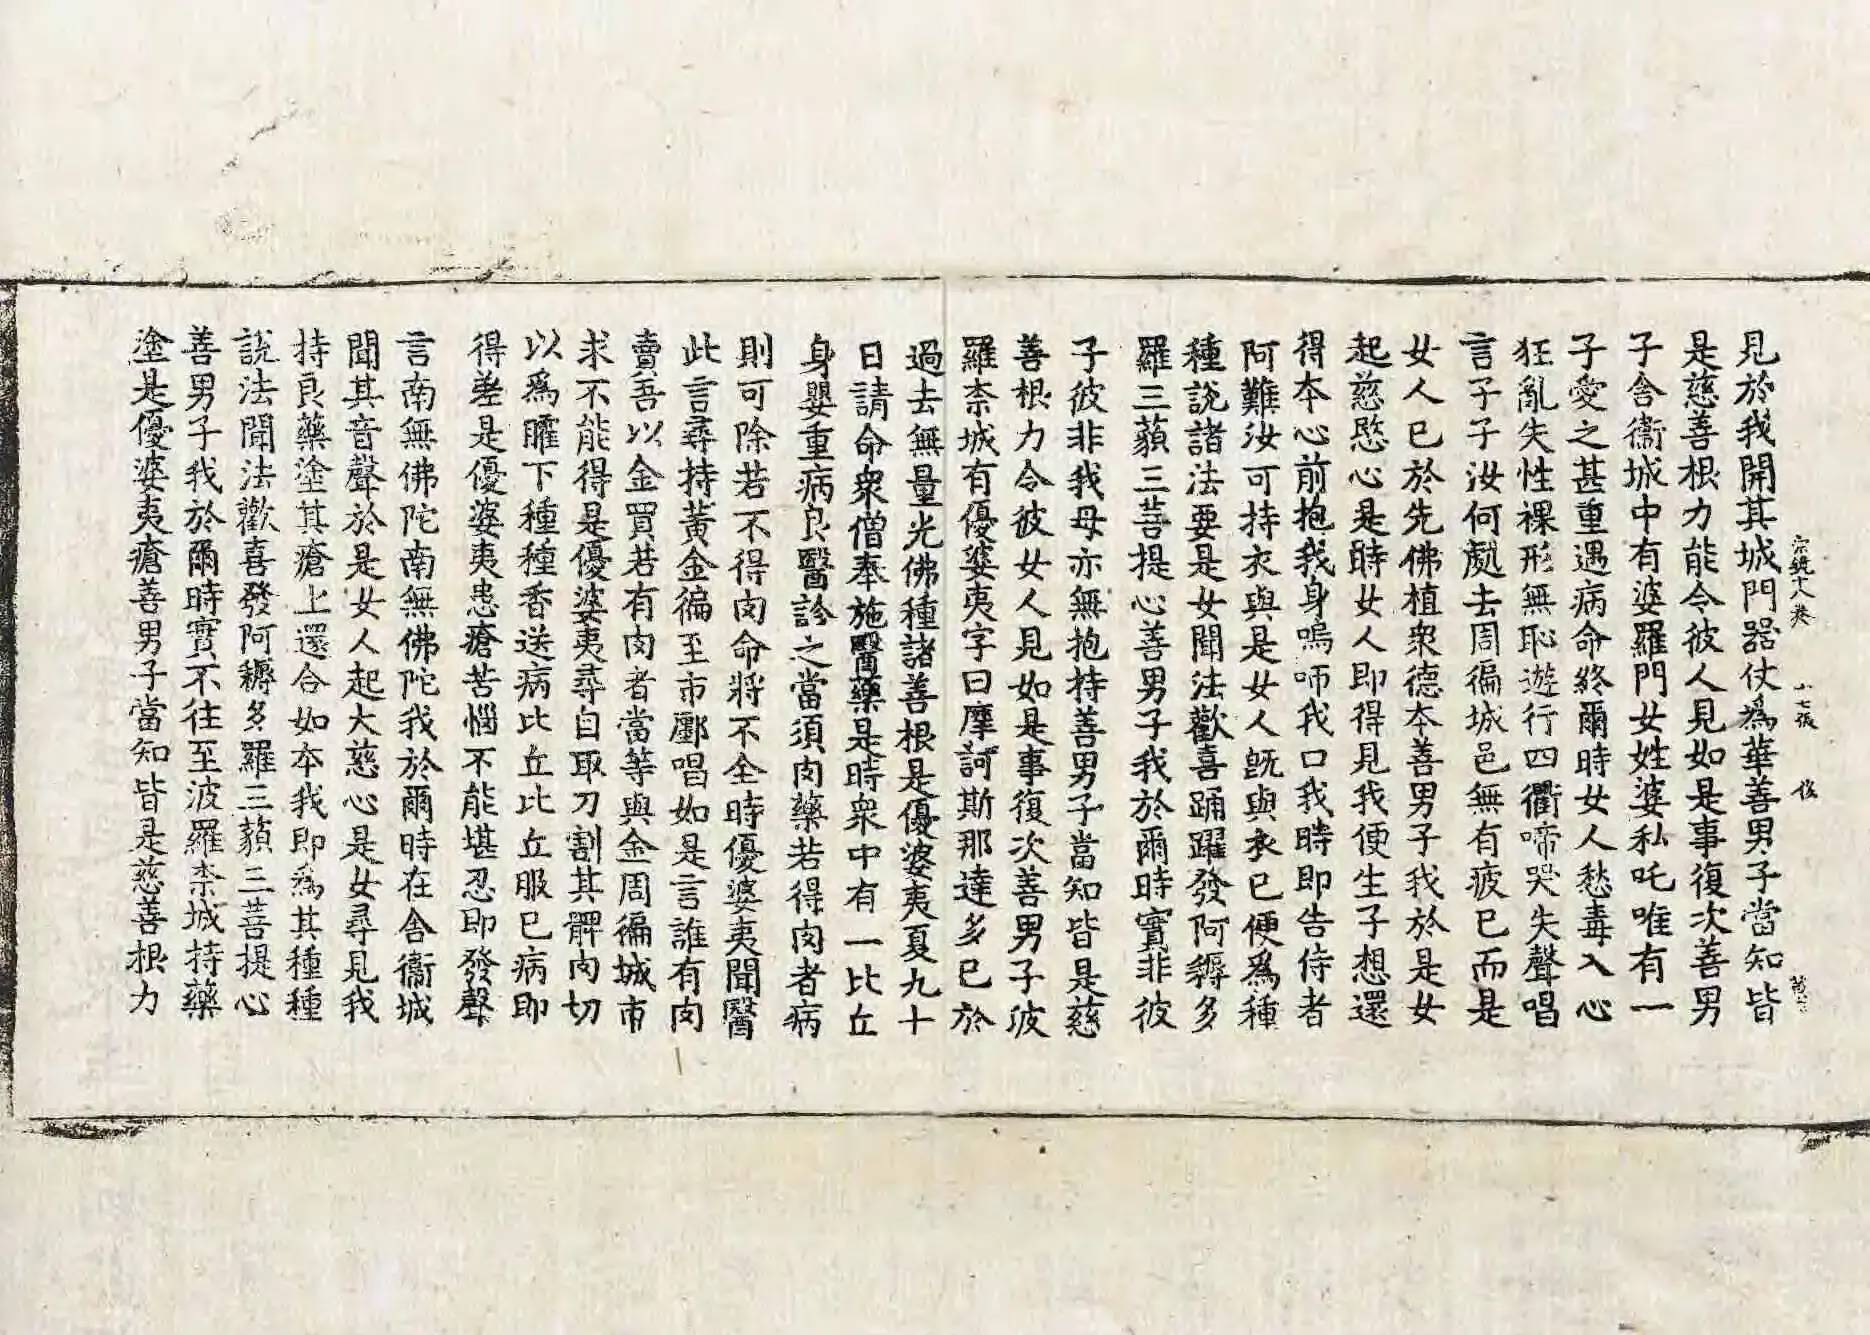 宗鏡十八卷 十七張 俊
見於我開其城門器仗爲華善男子當知皆
是慈善根力能令彼人見如是事復次善男
子舍衞城中有婆羅門女姓婆私吒唯有一
子愛之甚重遇病命終爾時女人愁毒入心
狂亂失性裸形無恥遊行四衢啼哭失聲唱
言子子汝何處去周徧城邑無有疲已而是
女人已於先佛植衆德本善男子我於是女
起慈愍心是時女人即得見我便生子想還
得本心前抱我身嗚呞我口我時即告侍者
阿難汝可持衣與是女人旣與衣已便爲種
種說諸法要是女聞法歡喜踊躍發阿耨多
羅三藐三菩提心善男子我於爾時實非彼
子彼非我母亦無抱持善男子當知皆是慈
善根力令彼女人見如是事復次善男子波
羅柰城有優婆夷字曰摩訶斯那達多已於
過去無量光佛種諸善根是優婆夷夏九十
日請命衆僧奉施醫藥是時衆中有一比丘
身嬰重病良醫診之當須肉藥若得肉者病
則可除若不得肉命將不全時優婆夷聞醫
此言尋持黃金徧至市鄽唱如是言誰有肉
賣吾以金買若有肉者當等與金周徧城市
求不能得是優婆夷尋自取刀割其髀肉切
以爲臛下種種香送病比丘比丘服已病即
得差是優婆夷患瘡苦惱不能堪忍即發聲
言南無佛陀南無佛陀我於爾時在舍衞城
聞其音聲於是女人起大慈心是女尋見我
持良藥塗其瘡上還合如本我即爲其種種
說法聞法歡喜發阿耨多羅三藐三菩提心
善男子我於爾時實不往至波羅柰城持藥
塗是優婆夷瘡善男子當知皆是慈善根力